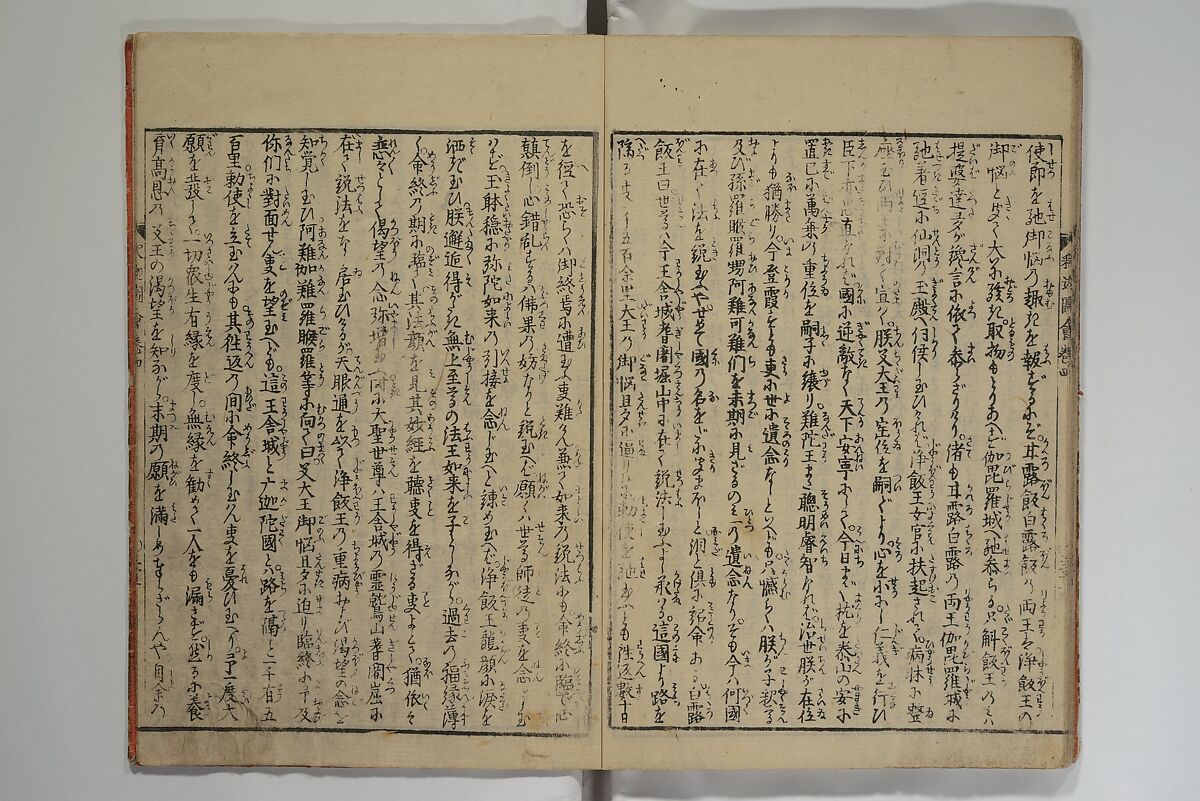 使節を馳御悩の趣きを報ずるにぞ甘露飯白露飯の両王も浄飯王の
御悩と聞て大に駭き取物もとりあへず伽毘羅城へ馳参らる只斛飯王のミハ
提婆達多が讒言に依て参らざりけり偖も甘露白露の両王伽毘羅城に
馳着逕に仙洞の玉殿に伺侯し玉ひけれバ浄飯王女官に扶起されて病牀に整
座し玉ひ両王に対て宣く朕父大王の宝位を嗣ぐより心を小にし仁義を行ひ
臣下亦忠直なれバ國に逆敵なく天下安寧にして今日まで枕を泰山の安に
置已に萬乗の重位を嗣子に禳り難陀王また聰明睿智なれバ治世朕が在位
よりも猶勝り今登霞をるとも更に世に遺念なしといへども只憾らくハ朕が子釈尊
及び孫羅睺羅甥阿難可難們を末期に見ざるの之一の遺念なりそも今ハ何國
に在て法を説玉ふやせめて國の名をバ聞まほしと泪と俱に詔命ある白露
飯王曰世尊ハ今王舎城耆闍堀山中に在て説法し玉へりと承ハる這國より路を
隔つ事五百余里大王の御悩旦夕に逼り勅使を馳玉ふとも往返數十日
を経べし恐らくハ御終焉に遭玉ふ事難くん兼て如来の説法にも命終に臨で心
顛倒し心錯乱をるハ佛果の妨なりと説玉へバ願くハ世尊師徒の事を念じ玉
ハず王躰穏に弥陀如来の引接を念じ玉へと諫め玉へバ浄飯王龍顔に涙を
洒ぎ玉ひ朕邂逅得がたき無上至尊の法王如来を子としながら過去の福縁薄
く命終の期に臨で其法顔を見其妙經を聽事を得ざる事よとて猶依々
戀々として偈望の念弥増玉ふ間に大聖世尊ハ王舎城の霊鷲山耆闍崛に
在て説法をなし居玉ひけるが天眼通を以て浄飯王の重病および渇望の念を
知覚し玉ひ阿難伽難羅睺羅等に向て曰父大王御悩旦夕に迫り臨終に及
你們に對面せん事を望玉へども這王舎城と迦陀國ハ路を隔こと千有五
百里勅使を立玉んにも其徃返の間に命終し玉ん事を憂ひ玉へり予一度大
願を發して一切衆生有縁を度し無縁を勧めて一人をも漏さじと誓ふに養
育高恩の父王の渇望を知ながら末期の願を満しめまうさゞらんや自余の
釈迦圖會巻四